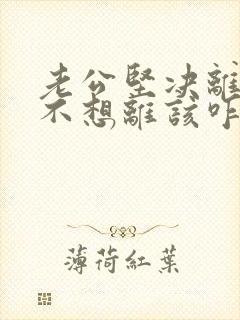 老公堅決離
不想離該咋
薄荷紅葉